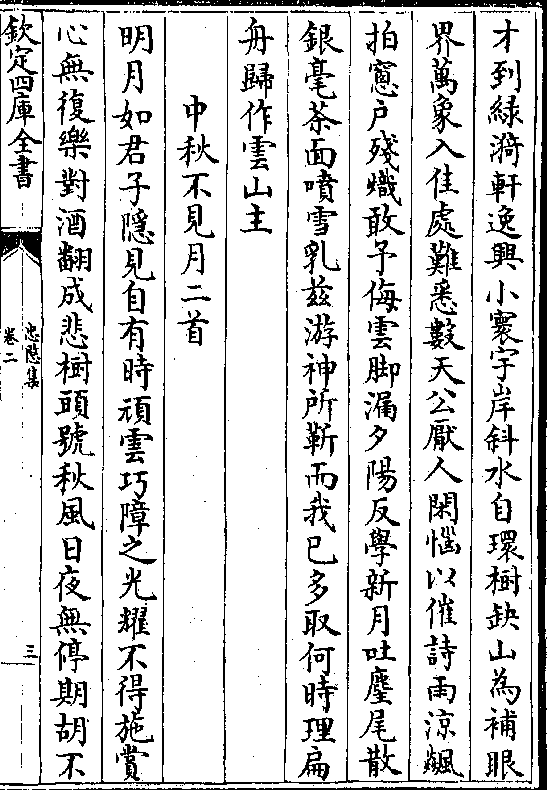 才到緑漪軒逸興小寰宇岸斜水自環樹缺山為補眼
界萬象入佳處難悉數天公厭人閑惱以催詩雨涼飇
拍窻户殘熾敢予侮雲脚漏夕陽反學新月吐麈尾散
銀毫茶面噴雪乳兹游神所靳而我已多取何時理扁
舟歸作雲山主
中秋不見月二首
明月如君子隱見自有時頑雲巧障之光耀不得施賞
心無復樂對酒翻成悲樹頭號秋風日夜無停期胡不
欽定四庫全書
忠隐集
卷二
三